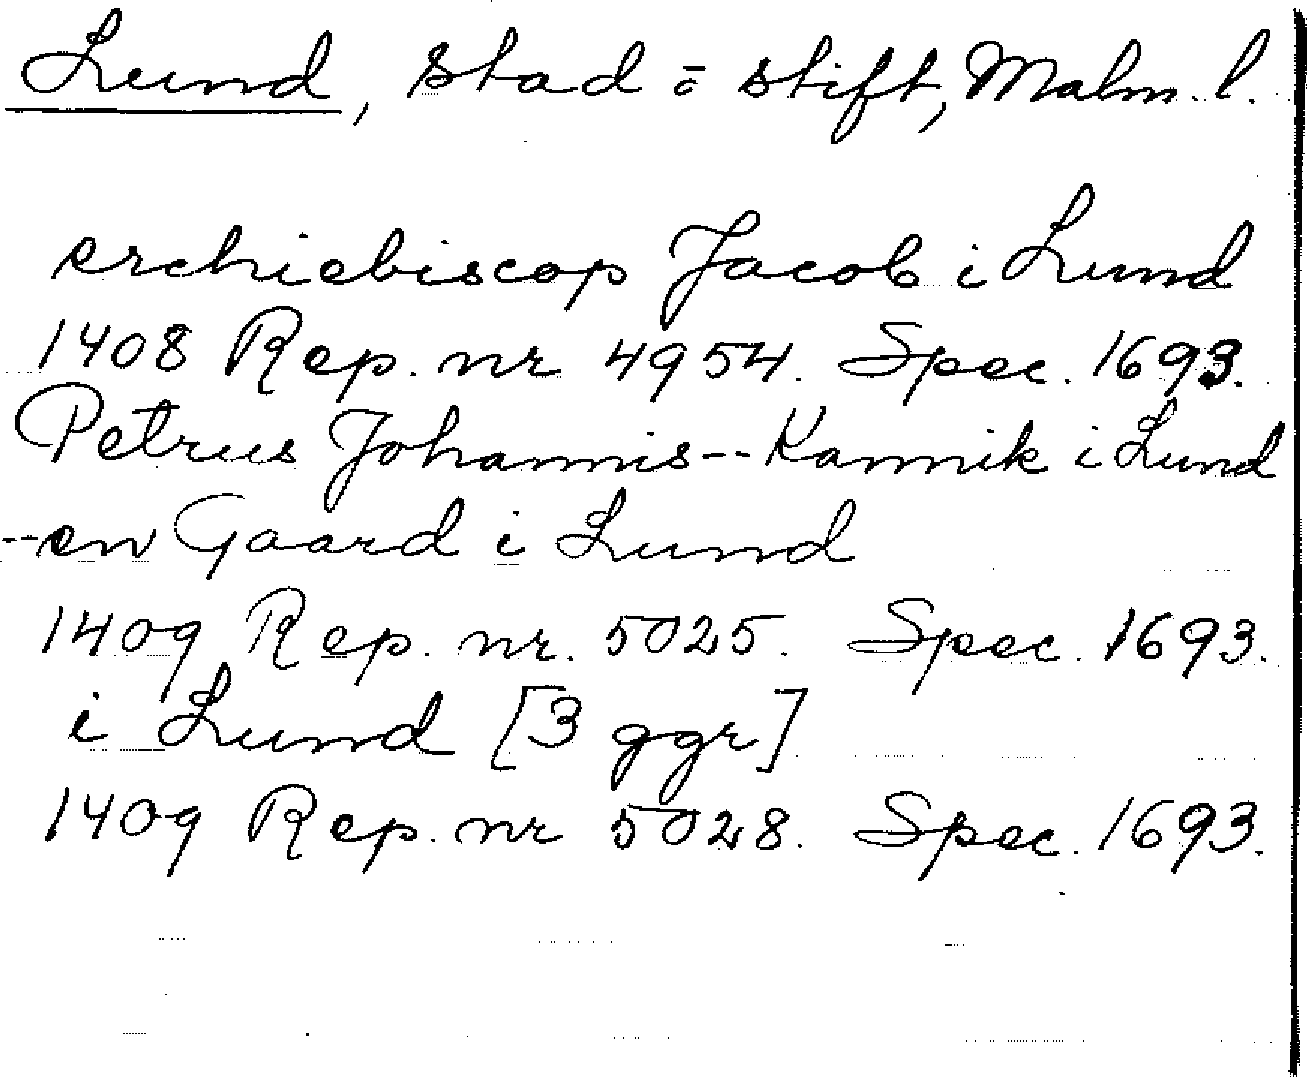 Lund, stad = stift, Malm. l.
erchiebiscop Jacob i Lund
1408 Rep. nr 4954. Spec. 1693.
Petrus Johannis -- Kannik i Lund
-- en Gaard i Lund
1409 Rep. nr. 5025. Spec. 1693.
i Lund [3 ggr]
1409 Rep. nr 5028. Spec. 1693.